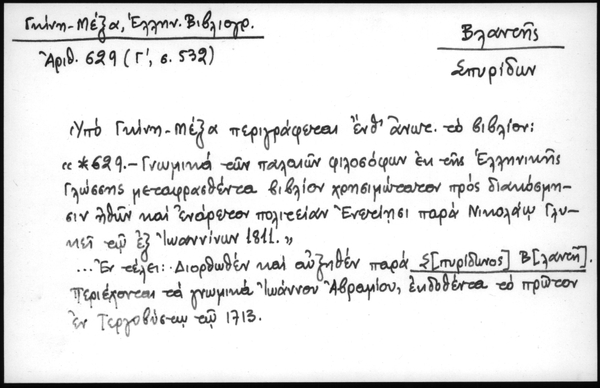 Γκίνη-Μέξα, Ἑλλην. Βιβλιογρ.
Ἀριθ. 629 (Γ', σ. 532)
Βλαντῆς
Σπυρίδων
Ὑπό Γκίνη-Μέξα περιγράφεται ἔνθ' ἄνωτ. τό βιβλίον:
«*629.- Γνωμικά τῶν παλαιῶν φιλοσόφων ἐκ τῆς Ἑλληνικῆς
Γλώσσης μεταφρασθέντα βιβλίον χρησιμώτατον πρός διακόσμη-
σιν ἠθῶν καί ἐνάρετον πολιτείαν Ἐνετίῃσι παρά Νικολάῳ Γλυ-
κεῖ τῷ ἐξ Ἰωαννίνων 1811.»
...Ἐν τέλει: Διορθωθέν καί αὐξηθέν παρά Σ[πυρίδωνος] Β[λαντῆ].
Περιέχονται τά γνωμικά Ἰωάννου Ἀβραμίου, ἐκδοθέντα τό πρῶτον
ἐν Τεργοβύστῳ τῷ 1713.